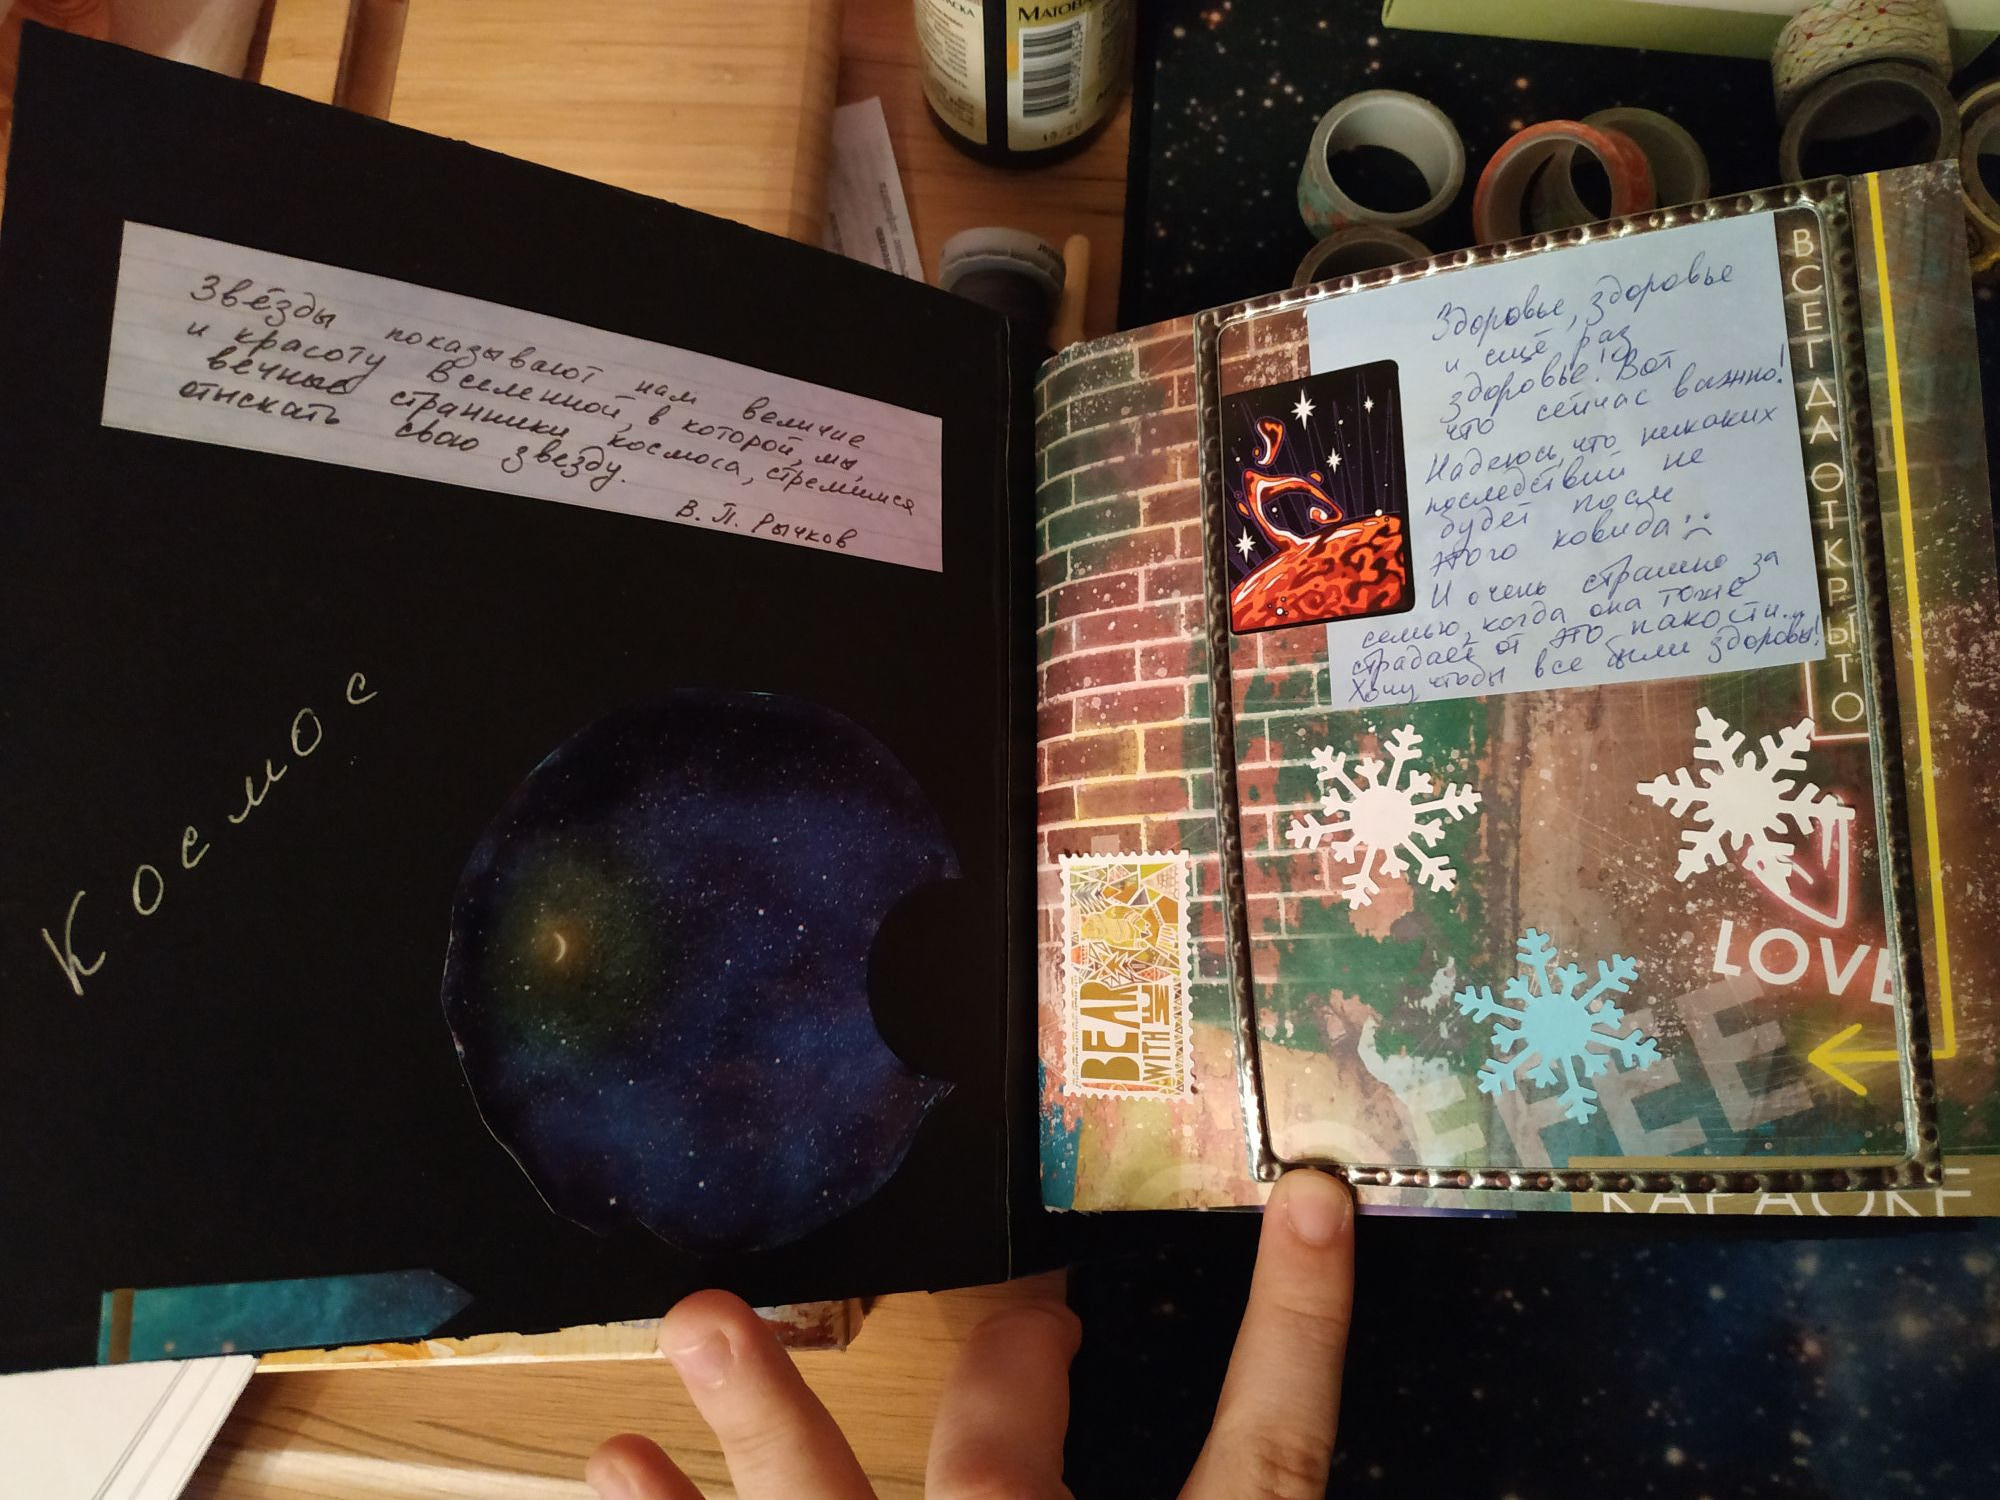 МАТОВА
Звёзды показывают нам величие
и красоту Вселенной, в которой, мы,
вечные странники космоса, стремимся
отыскать свою звезду.
В. П. Рычков
Космос
Здоровье, здоровье
и ещё раз
здоровье! Вот
что сейчас важно!
Надеюсь, что никаких
последствий не
будет после
этого ковида
И очень страшно за
семью, когда она тоже
страдает от это пакости...
Хочу, чтобы все были здоровы!
ВСЕГДА ОТКРЫТО
BEAR
WITH ME
LOVE
FFEE
КАРАОКЕ